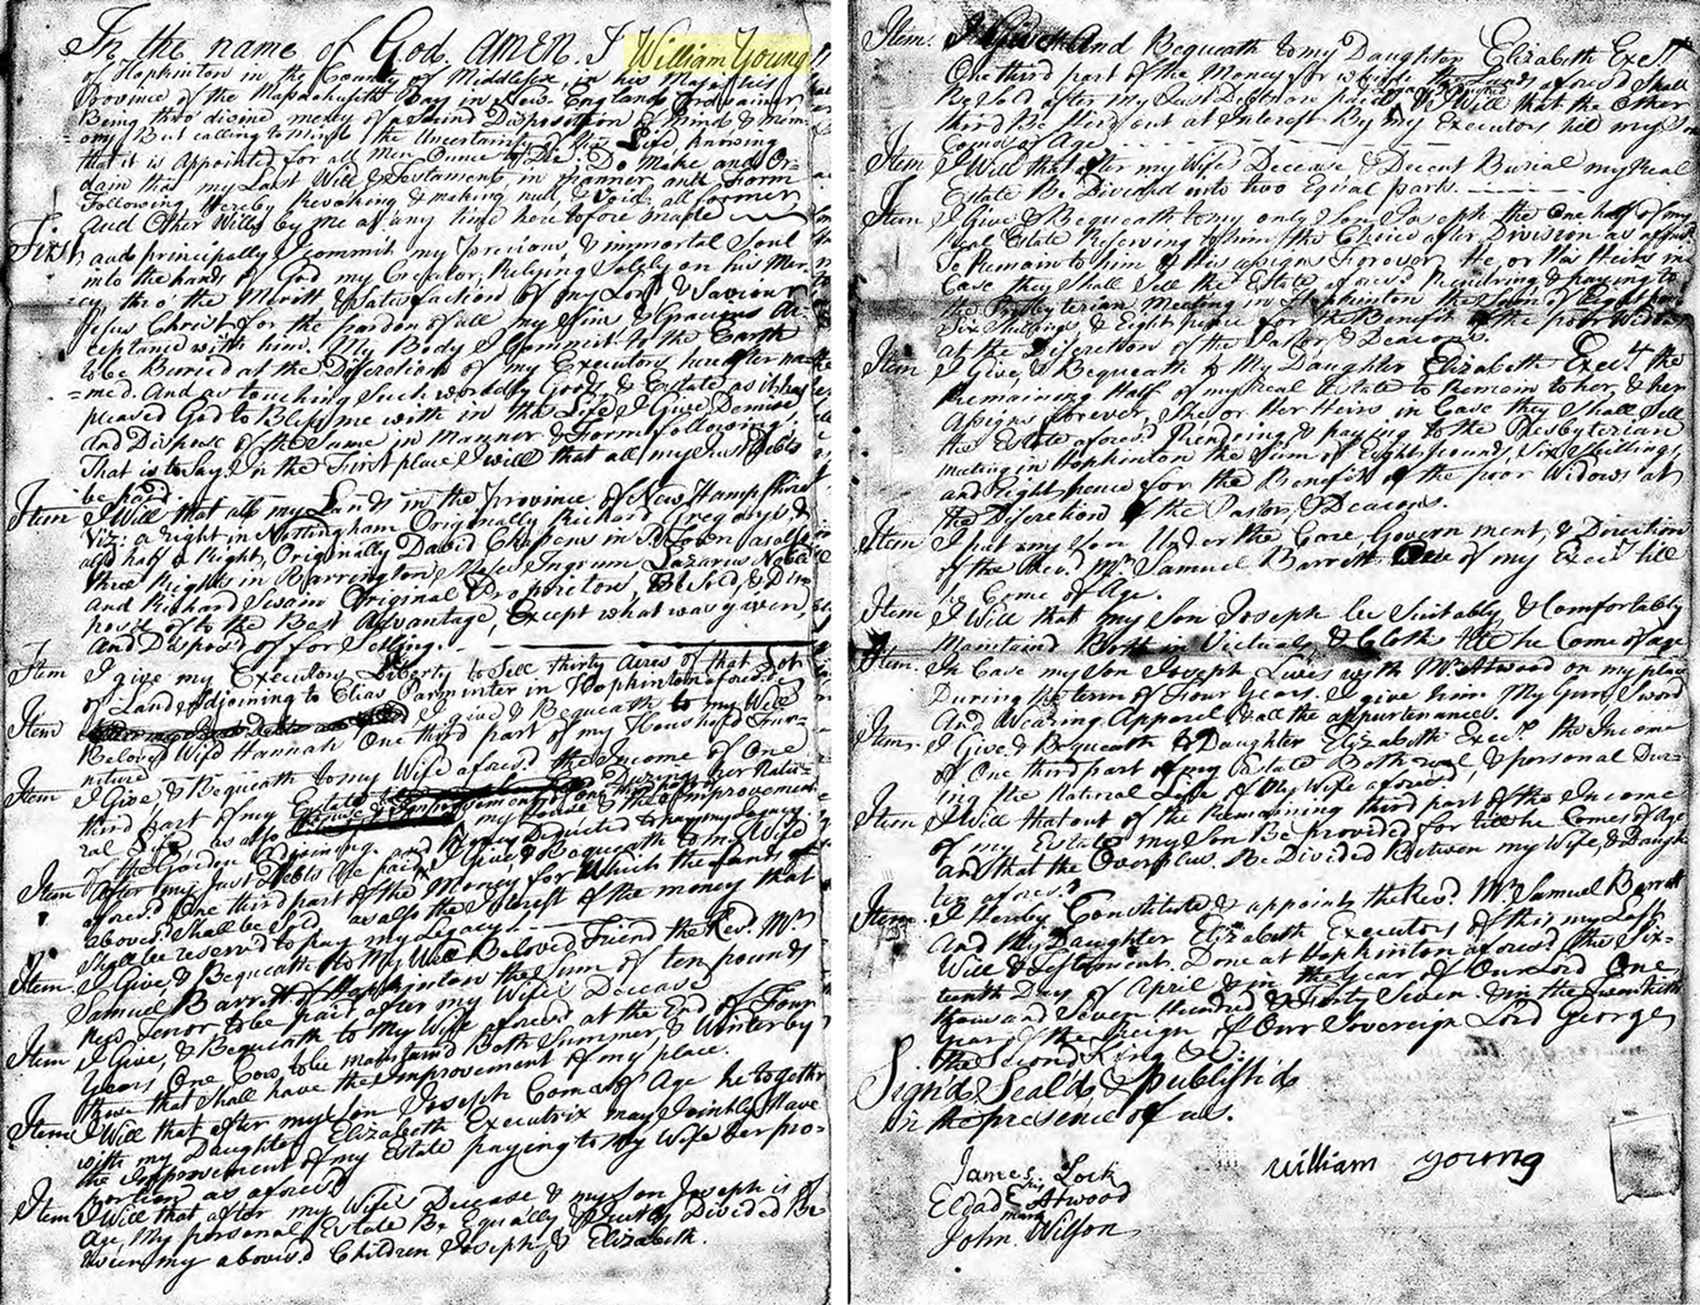 In the name of God. AMEN. I William Young
of Hopkinton in the County of Middlesex, in his Majesties
Province of the Massachusetts Bay in New-England
Being thro' divine mercy of a sound Disposition of mind, & mem=
ory, But calling to mind the Uncertainty of this Life, knowing
that it is Appointed for all Men Ounce to Die: Do Make and Or=
dain this my Last Will & Testament, in manner and Form
Following, Hereby Revoaking & making null, & Void, all former
And Other Wills by me at any time here tofore made
First, and principally I commit my precious, & immortal Soul
into the hands of God my Creator, Relying Solely on his Mer=
=cy, thro' the Merett & Satisfaction of my Lord & Saviour
Jesus Christ for the pardon of all my Sins & Gracious Ac=
ceptance with him. My Body I Commit to the Earth
to be Buried at the Discretion of my Executors hereafter na=
=med. And as touching Such worldly Goods & Estate as it has
pleased God to Bless me with in this Life I Give Demise
And Dispose of the Same in Manner & Form following.
That is to Say. In the First place I will that all my Just Debts
be paid
Item I Will that all my Lands in the province of New Hampshire
Viz: a right in Nottingham Originally Richard Gregorys, &
also half a Right, Originally David Chapmens in Town as also
three Rights in Barrington, Moses Ingrum Lazarus Noble
and Richard Swain Original Proprietors, Be Sold, & Dis
posd of to the Best Advantage, Except what was given
And Disposd of for Settling.
Item I give my Executors Liberty to Sell thirty Acres of that Lot
of Land Adjoining to Elias Parminter in Hopkinton aforesd.
Item I give & Bequeath to my Well
Beloved Wife Hannah One third part of my Houshold Fur=
niture
Item I Give, & Bequeath to my Wife aforesd. the Income of One
third part of my Estate During her Natu=
ral Life, as also my House & the Improvement
of the Garden Adjoining. and Money Deducted to pay my Legacy
Item After my Just Debts Are paid, I Give & Bequeath to my Wife
aforesd. One third part of the Money for Which the Lands
abovesd. Shall be Sold as also the Interest of the money that
Shall be reserved to pay my Legacy.
Item I Give, & Bequeath to My Well Beloved Friend the Revd. Mr.
Samuel Barrett of Hopkinton the Sum of ten pounds
New Tenor to be paid after my Wifes Decease
Item I Give, & Bequeath to My Wife aforesd at the End of Four
Years One Cow, to be maintaind Both Summer, & Winter by
those that Shall have the Improvement of my place.
Item I Will that after my Son Joseph Comes of Age he togethr
with my Daughter Elizabeth Executrix may Jointly Have
the Improvement of my Estate paying to My Wife her pro=
portion as aforesd
Item I Will that after my Wifes Decease & my Son Joseph is of
Age, My personal Estate Be Equally & Justly Divided Be
tween my abovesd Children Joseph, & Elizabeth.
Item. I Give And Bequeath to my Daughter Elizabeth Exert.
One third part of the Money for which the Lands aforesd Shall
Be Sold after my Just Debts are paid, & I Will that the Other
third Be Hird out at Interest By my Executors till my Son
Comes of Age
Item I Will that after my Wifes Decease & Decent Burial my Real
Estate Be Divided into two Equal parts.
Item I Give & Bequeath to my only Son Joseph the One half of my
Real Estate Reserving to him the Choice after Division as aforesd
To Remain to him & His assigns Forever, He, or His Heirs in
Case they Shall Sell the Estate aforesd Rendring & paying to
the Presbyterian Meeting in Hopkinton the Sum of Eight pounds
Six Shillings, & Eight pence for the Benefit of the poor Widows
at the Discretion of the Pastor, & Deacons.
Item I Give, & Bequeath to My Daughter Elizabeth Exect. the
Remaining Half of my Real Estate to Remain to her, & her
Assigns forever, She, or Her Heirs in Case they Shall Sell
the Estate aforesd Rendring & paying to the Presbyterian
meeting in Hopkinton the Sum of Eight pounds, Six Shillings,
and Eight pence for the Benefit of the poor Widows at
the Discretion of the Pastor, & Deacons.
Item I put my Son Under the Care, Government, & Direction
of the Revd. Mr. Samuel Barrett One of my Exect till
is Come of Age.
Item I Will that my Son Joseph be Suitably, & Comfortably
Maintaind Both in Victuals, & Cloth till he Come of age
Item. In Case my Son Joseph Lives with Mr. Atwood on my place
During the term of Four Years. I give him My Gun, Sword
And Wearing Apparel, & all the appurtenances.
Item. I Give & Bequeath to Daughter Elizabeth Exect. the Income
of One third part of my Estate Both real, & personal Dur=
ing the Natural Life of My Wife aforesd.
Item I Will that out of the Remaining third part of the Income
of my Estate my Son Be provided for till he Comes of Age
and that the Overplus, Be Divided Between my Wife, & Daugh
ter aforesd.
Item. I Hereby Constitute, & appoint the Revd. Mr. Samuel Barrett
And My Daughter Elizabeth Executors of this my Last
Will & Testament. Done at Hopkinton aforesd. this Six=
teenth Day of April & in the year of Our Lord One
thousand Seven Hundred & Forty Seven. & in the twentieth
year of the Reign of Our Sovereign Lord George
the Second King &c.
Signd, Seald, & publishd
in the presence of us.
James Lock
Eldad his Atwood
mark
John Wilson
william young